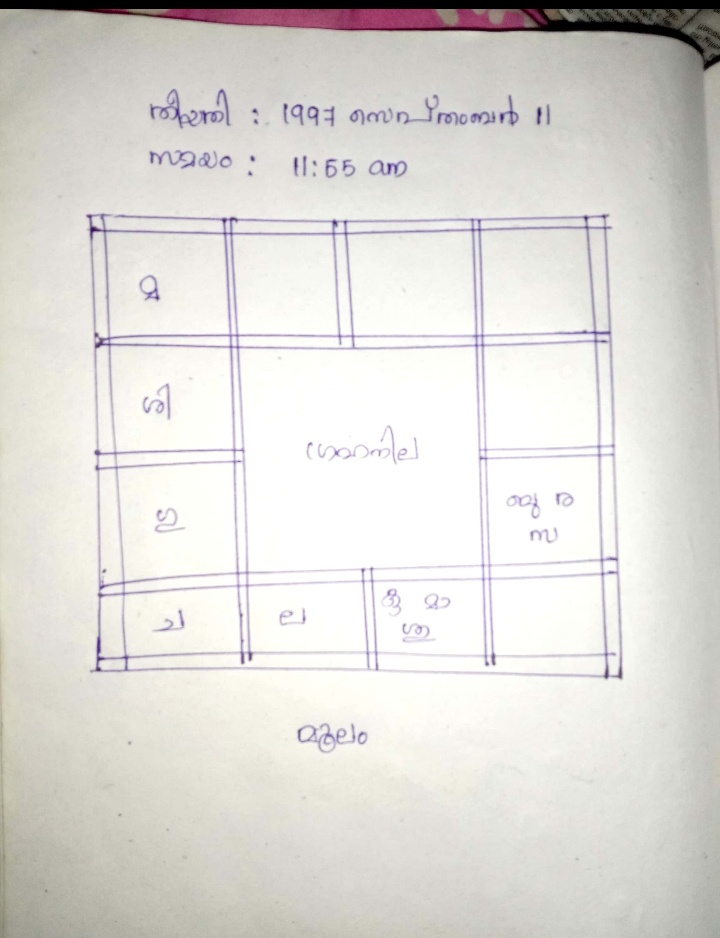 തീയ്യതി : 1997 സെപ്തംബർ 11
സമയം : 11:55 am
മ
ശി
ഗ്രഹനില
ഗു
ബു ര
സ
ച
ല
കു മാ
ശു
മൂലം